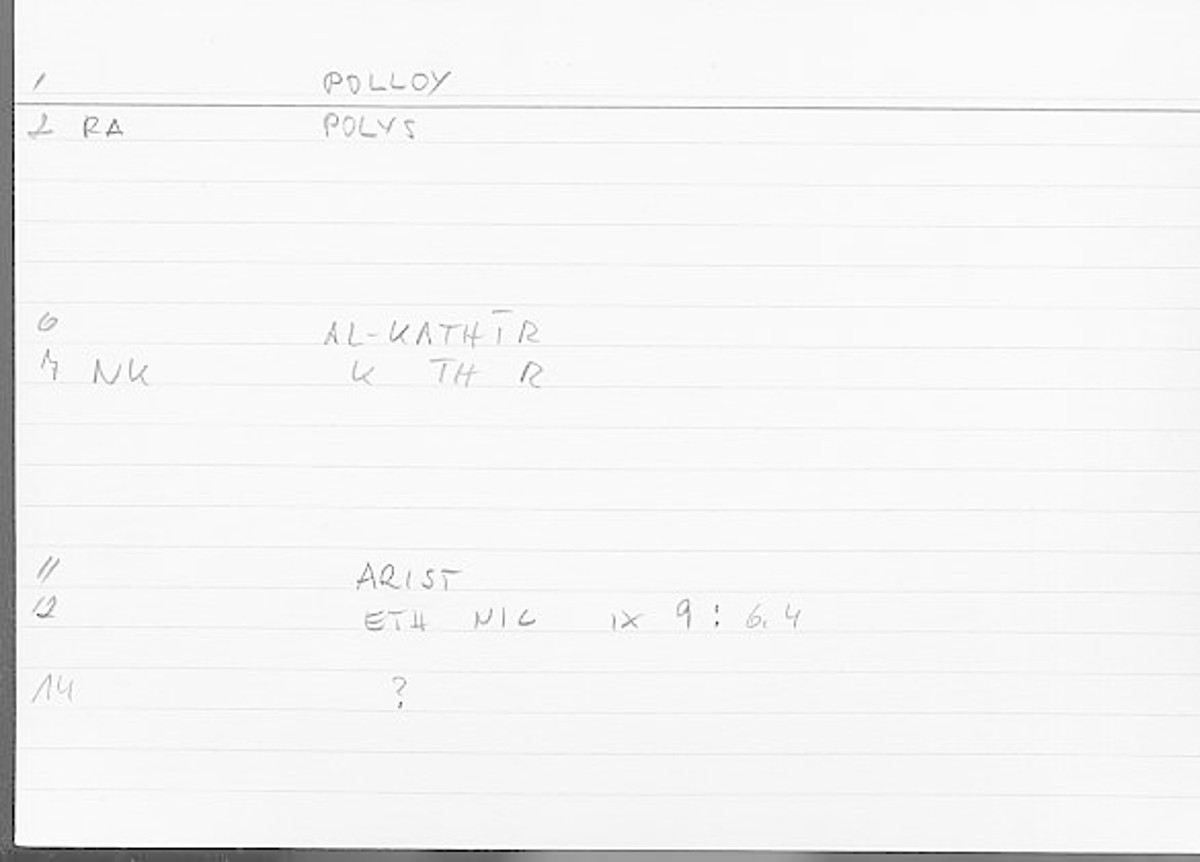 1 POLLOY
2 RA POLYS
6 AL-KATHĪR
7 NK K TH R
11 ARIST
12 ETH NIC IX 9 : 6.4
14 ?